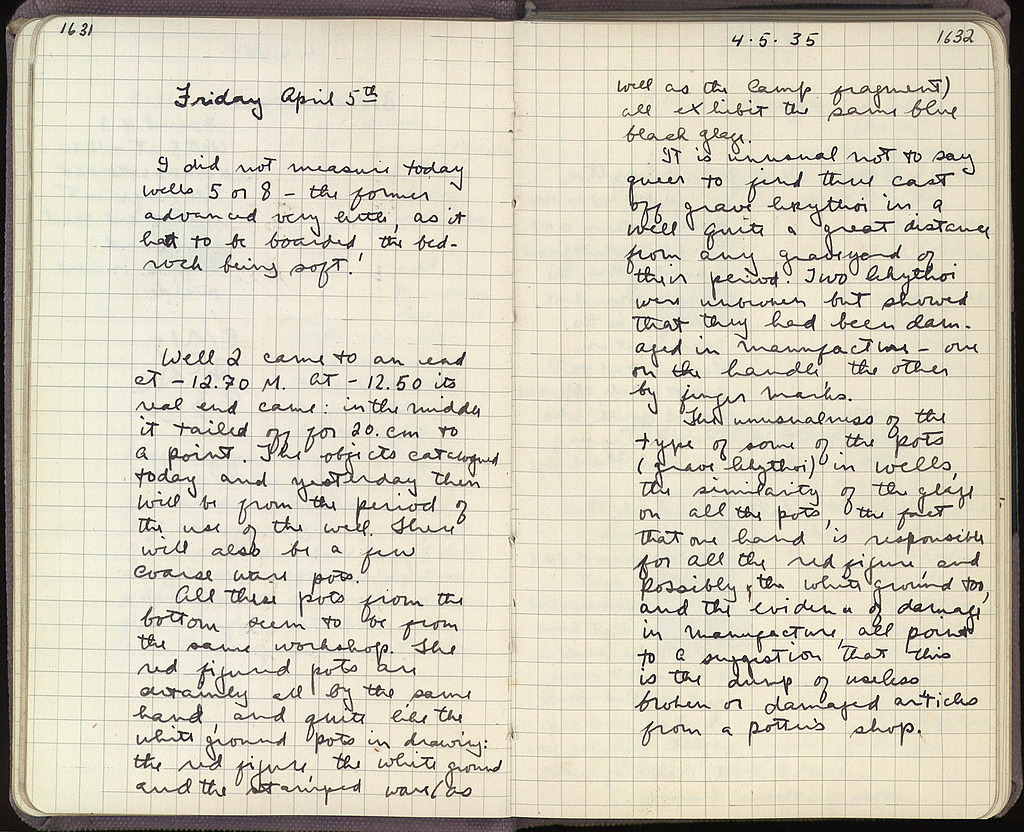 1631
Friday April 5th
I did not measure today
wells 5 or 8 – the former
advanced very little, as it
had to be boarded the bed-
rock being soft.
Well 2 came to an end
at – 12.70 M. At – 12.50 its
real end came: in the middle
it tailed off for 20. cm to
a point. The objects catalogued
today and yesterday then
will be from the period of
the use of the well. There
will also be a few
coarse ware pots.
All these pots from the
bottom seem to be from
the same workshop. The
red figured pots are
certainly all by the same
hand, and quite like the
white ground pots in drawing:
the red figure, the white ground
and the stamped ware (as
4 · 5 · 35
1632
well as the lamp fragment)
all exhibit the same blue
black glaze.
It is unusual not to say
queer to find three cast
off grave lekythoi in a
well quite a great distance
from any graveyard of
their period. Two lekythoi
were unbroken but showed
that they had been dam-
aged in manufacture – one
on the handle the other
by finger marks.
The unusualness of the
type of some of the pots
(grave lekythoi) in wells,
the similarity of the glaze
on all the pots, the fact
that one hand is responsible
for all the red figure, and
possibly, the white ground too,
and the evidence of damage
in manufacture, all point
to a suggestion that this
is the dump of useless
broken or damaged articles
from a potter's shop.